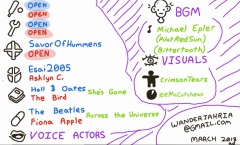 OPEN
OPEN
OPEN
OPEN
SavorOfHummens
OPEN
Esai2005
Ashlyn C.
Hall & Oates
The Bird
She's Gone
The Beatles
Fiona Apple
Across the Universe
VOICE ACTORS
BGM
Michael Epler
(BitterTooth)
VISUALS
CrimsonTears
WANDERJAHRIA
@GMAIL.COM
MARCH 2018